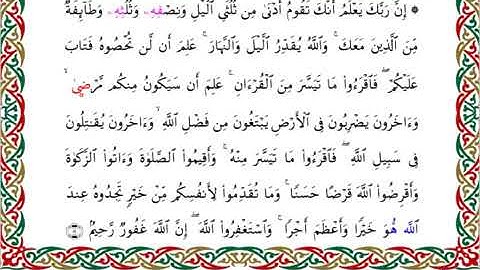 ۞ إِنَّ رَبَّكَ يَعْلَمُ أَنَّكَ تَقُومُ أَدْنَىٰ مِن ثُلُثَىِ ٱلَّيْلِ وَنِصْفَهُۥ وَثُلُثَهُۥ وَطَآئِفَةٌ
مِّنَ ٱلَّذِينَ مَعَكَ ۚ وَٱللَّهُ يُقَدِّرُ ٱلَّيْلَ وَٱلنَّهَارَ ۚ عَلِمَ أَن لَّن تُحْصُوهُ فَتَابَ
عَلَيْكُمْ ۖ فَٱقْرَءُوا۟ مَا تَيَسَّرَ مِنَ ٱلْقُرْءَانِ ۚ عَلِمَ أَن سَيَكُونُ مِنكُم مَّرْضَىٰ ۙ
وَءَاخَرُونَ يَضْرِبُونَ فِى ٱلْأَرْضِ يَبْتَغُونَ مِن فَضْلِ ٱللَّهِ ۙ وَءَاخَرُونَ يُقَـٰتِلُونَ
فِى سَبِيلِ ٱللَّهِ ۖ فَٱقْرَءُوا۟ مَا تَيَسَّرَ مِنْهُ ۚ وَأَقِيمُوا۟ ٱلصَّلَوٰةَ وَءَاتُوا۟ ٱلزَّكَوٰةَ
وَأَقْرِضُوا۟ ٱللَّهَ قَرْضًا حَسَنًا ۚ وَمَا تُقَدِّمُوا۟ لِأَنفُسِكُم مِّنْ خَيْرٍ تَجِدُوهُ عِندَ
ٱللَّهِ هُوَ خَيْرًا وَأَعْظَمَ أَجْرًا ۚ وَٱسْتَغْفِرُوا۟ ٱللَّهَ ۖ إِنَّ ٱللَّهَ غَفُورٌ رَّحِيمٌۢ ﴿٢٠﴾